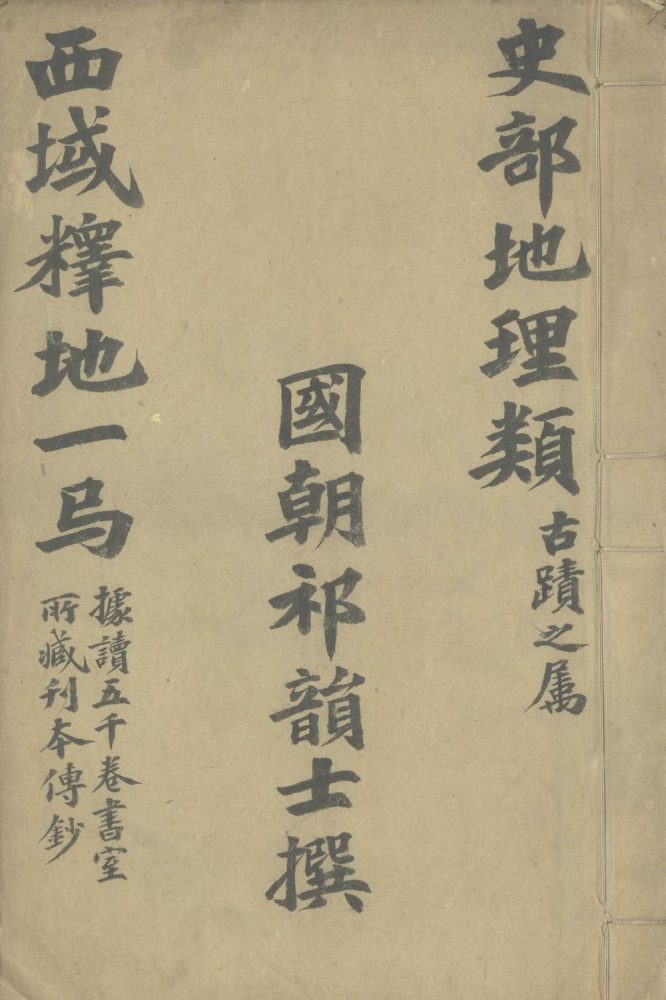 史部地理類
古蹟之属
國朝祁韻士撰
西域釋地一㢧
據讀五千卷書室
所藏刊本傳鈔